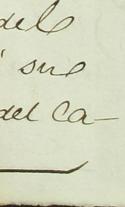 del
sue
del ca-